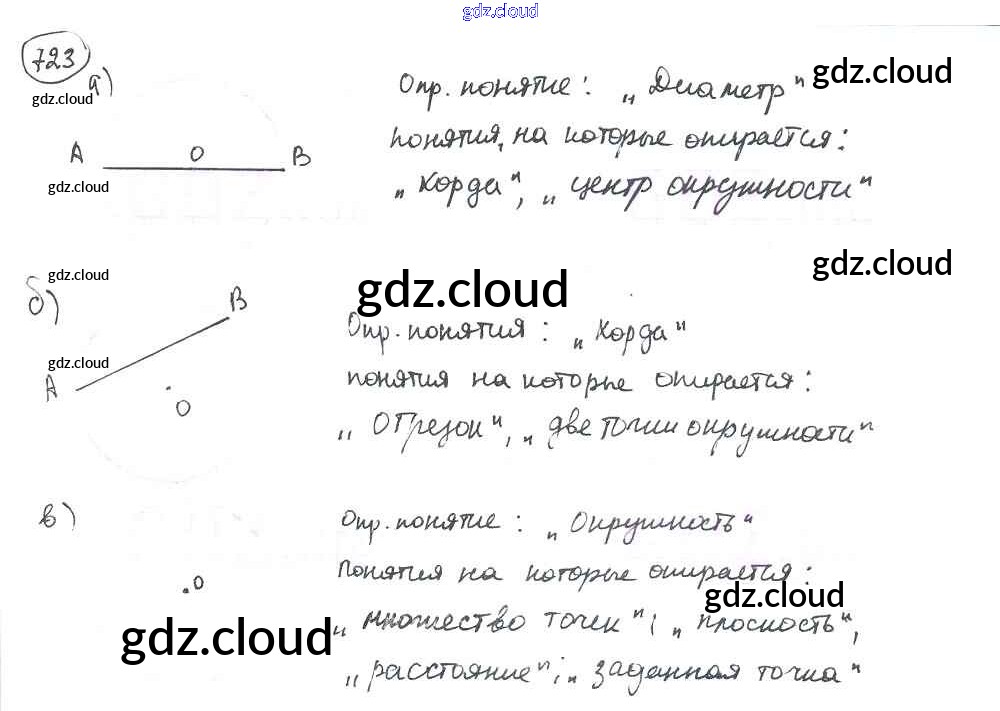 gdz.cloud
723
а)
gdz.cloud
A O B
gdz.cloud
Опр. понятие: „Диаметр"
gdz.cloud
понятия, на которые опирается:
„Хорда", „центр окружности"
б)
gdz.cloud
gdz.cloud
gdz.cloud
B
gdz.cloud
A
O
Опр. понятия: „Хорда"
понятия на которые опирается:
„Отрезок", „две точки окружности"
в)
O
Опр. понятие: „Окружность"
Понятия на которые опирается:
gdz.cloud
gdz.cloud
„множество точек"; „плоскость",
„расстояние"; „заданная точка"